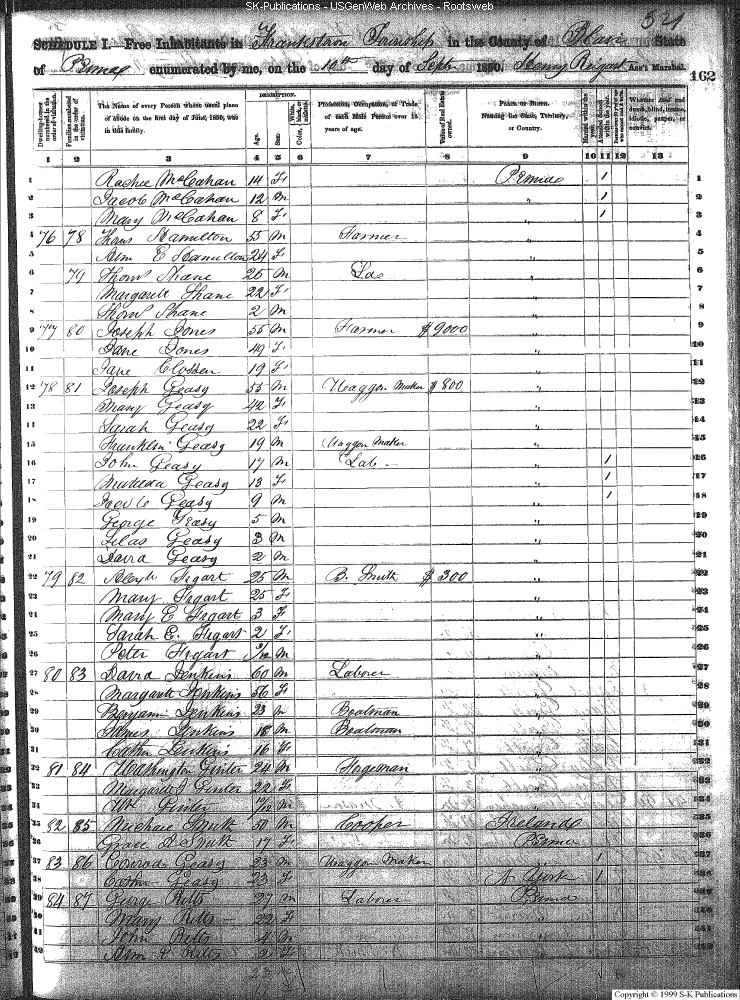 SK-Publications - USGenWeb Archives - Rootsweb
521
SCHEDULE I. Free Inhabitants in Frankstown Township in the County of Blair State
of Penna enumerated by me, on the 10th day of Sept 1850. Henry Reigart Ass't Marshal. 162
Dwelling-houses numbered in the order of visitation.
Families numbered in the order of visitation.
The Name of every Person whose usual place of abode on the first day of June, 1850, was in this family.
DESCRIPTION.
Age.
Sex.
Color, White, black, or mulatto.
Profession, Occupation, or Trade of each Male Person over 15 years of age.
Value of Real Estate owned.
PLACE OF BIRTH. Naming the State, Territory, or Country.
Married within the year.
Attended School within the year.
Whether deaf and dumb, blind, insane, idiotic, pauper, or convict.
1 2 3 4 5 6 7 8 9 10 11 12 13
1 Rachel McCahan 14 F Penna 1 1
2 Jacob McCahan 12 M " 1 2
3 Mary McCahan 8 F " 1 3
4 76 78 Thom Hamilton 55 M Farmer " 4
5 E Hamilton 24 F " 5
6 79 Thom Shane 25 M Lab " 6
7 Margarett Shane 22 F " 7
8 Thom Shane 2 M " 8
9 77 80 Joseph Jones 55 M Farmer $9000 " 9
10 Jane Jones 49 F " 10
11 Jane Clossen 19 F " 11
12 78 81 Joseph Geasy 55 M Waggon Maker $800 " 12
13 Mary Geasy 42 F " 13
14 Sarah Geasy 22 F " 14
15 Franklin Geasy 19 M Waggon Maker " 15
16 John Geasy 17 M Lab " 1 16
17 Geasy 13 F " 1 17
18 Jacob Geasy 9 M " 1 18
19 George Geasy 5 M " 19
20 Silas Geasy 3 M " 20
21 David Geasy 2 M " 21
22 79 82 Figart 25 M B. Smith $300 " 22
23 Mary Figart 25 F " 23
24 Mary E Figart 3 F " 24
25 Sarah E. Figart 2 F " 25
26 Peter Figart /12 M " 26
27 80 83 David Jenkins 60 M Laborer " 27
28 Margaret Jenkins 56 F " 28
29 Benjamin Jenkins 23 M Boatman " 29
30 James Jenkins 18 M Boatman " 30
31 Cathn Jenkins 16 F " 31
32 81 84 Washington Ginter 24 M Forgeman " 32
33 Margaret J Ginter 22 F " 33
34 Wm Ginter 10/12 M " 34
35 82 85 Michael Smith 50 M Cooper Ireland 35
36 Grace A Smith 17 F Penna 36
37 83 86 Conrod Geasy 23 M Waggon Maker " 1 37
38 Cathn Geasy 23 F N York 1 38
39 84 87 George Ritts 27 M Laborer Penna 39
40 Mary Ritts 22 F " 40
41 John Ritts 4 M " 41
42 Ann Ritts 2 F " 42
Copyright © 1999 S-K Publications